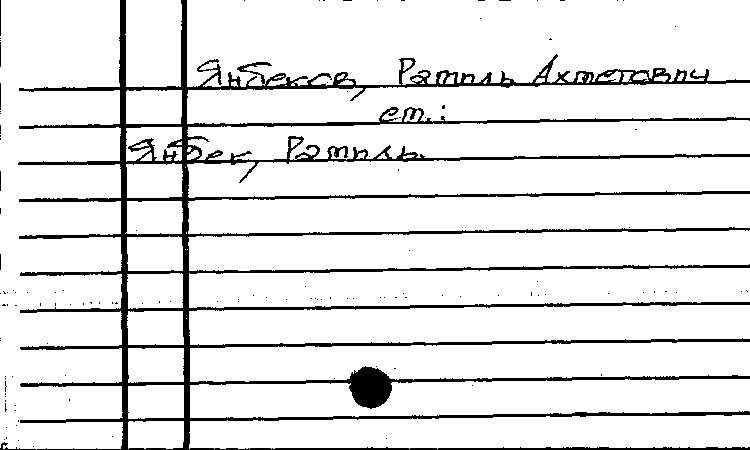 Янбеков, Рамиль Ахметович
см.:
Янбек, Рамиль.